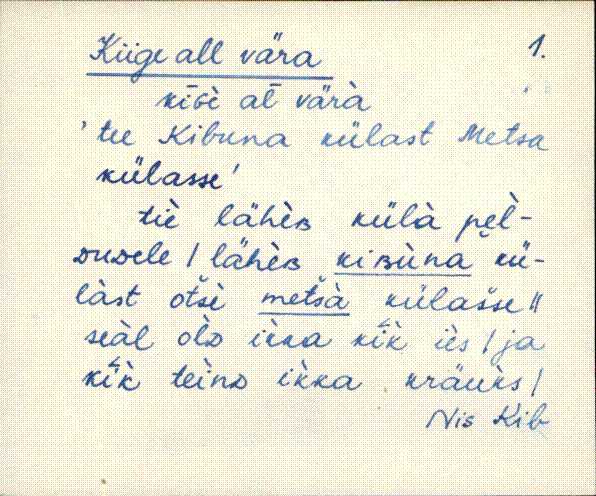 Kiige all vära 1.
kiɢè al̄ värà
'tee Kibuna külast Metsa
külasse'
tiè lähèʙ külà pe̬l̀-
dudele / lähèʙ kiʙùna kü-
làst ot́s̀è met́s̀à külaśse //
seàl olᴅ ikka kìk iès / ja
kìk teìnᴅ ikka kräùks /
Nis Kib